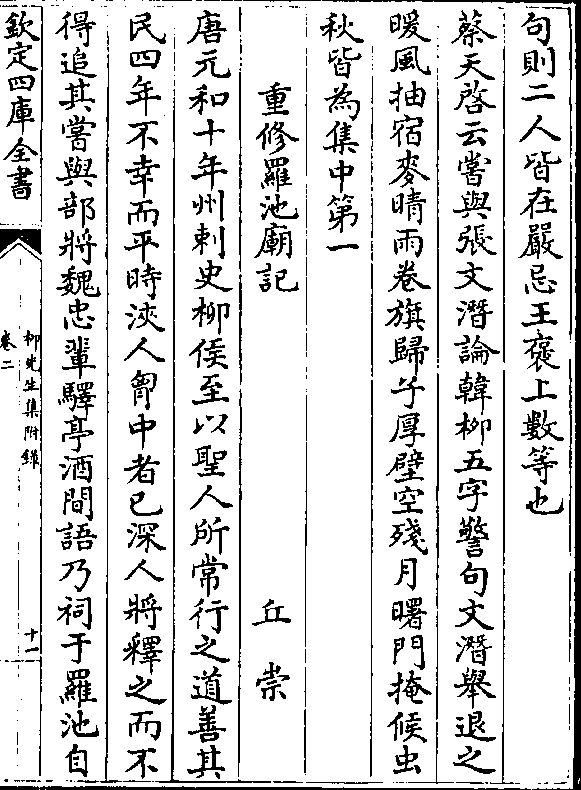 句則二人皆在嚴忌王褒上數等也
蔡天啓云嘗與張文潛論韓柳五字警句文潛舉退之
暖風抽宿麥晴雨卷旗歸子厚壁空殘月曙門掩候虫
秋皆為集中第一
重修羅池廟記
丘崇
唐元和十年州刺史柳侯至以聖人所常行之道善其
民四年不幸而平時浹人胷中者已深人將釋之而不
得追其嘗與部將魏忠輩驛亭酒間語乃祠于羅池自
欽定四庫全書
柳先生集附錄
卷二
十一